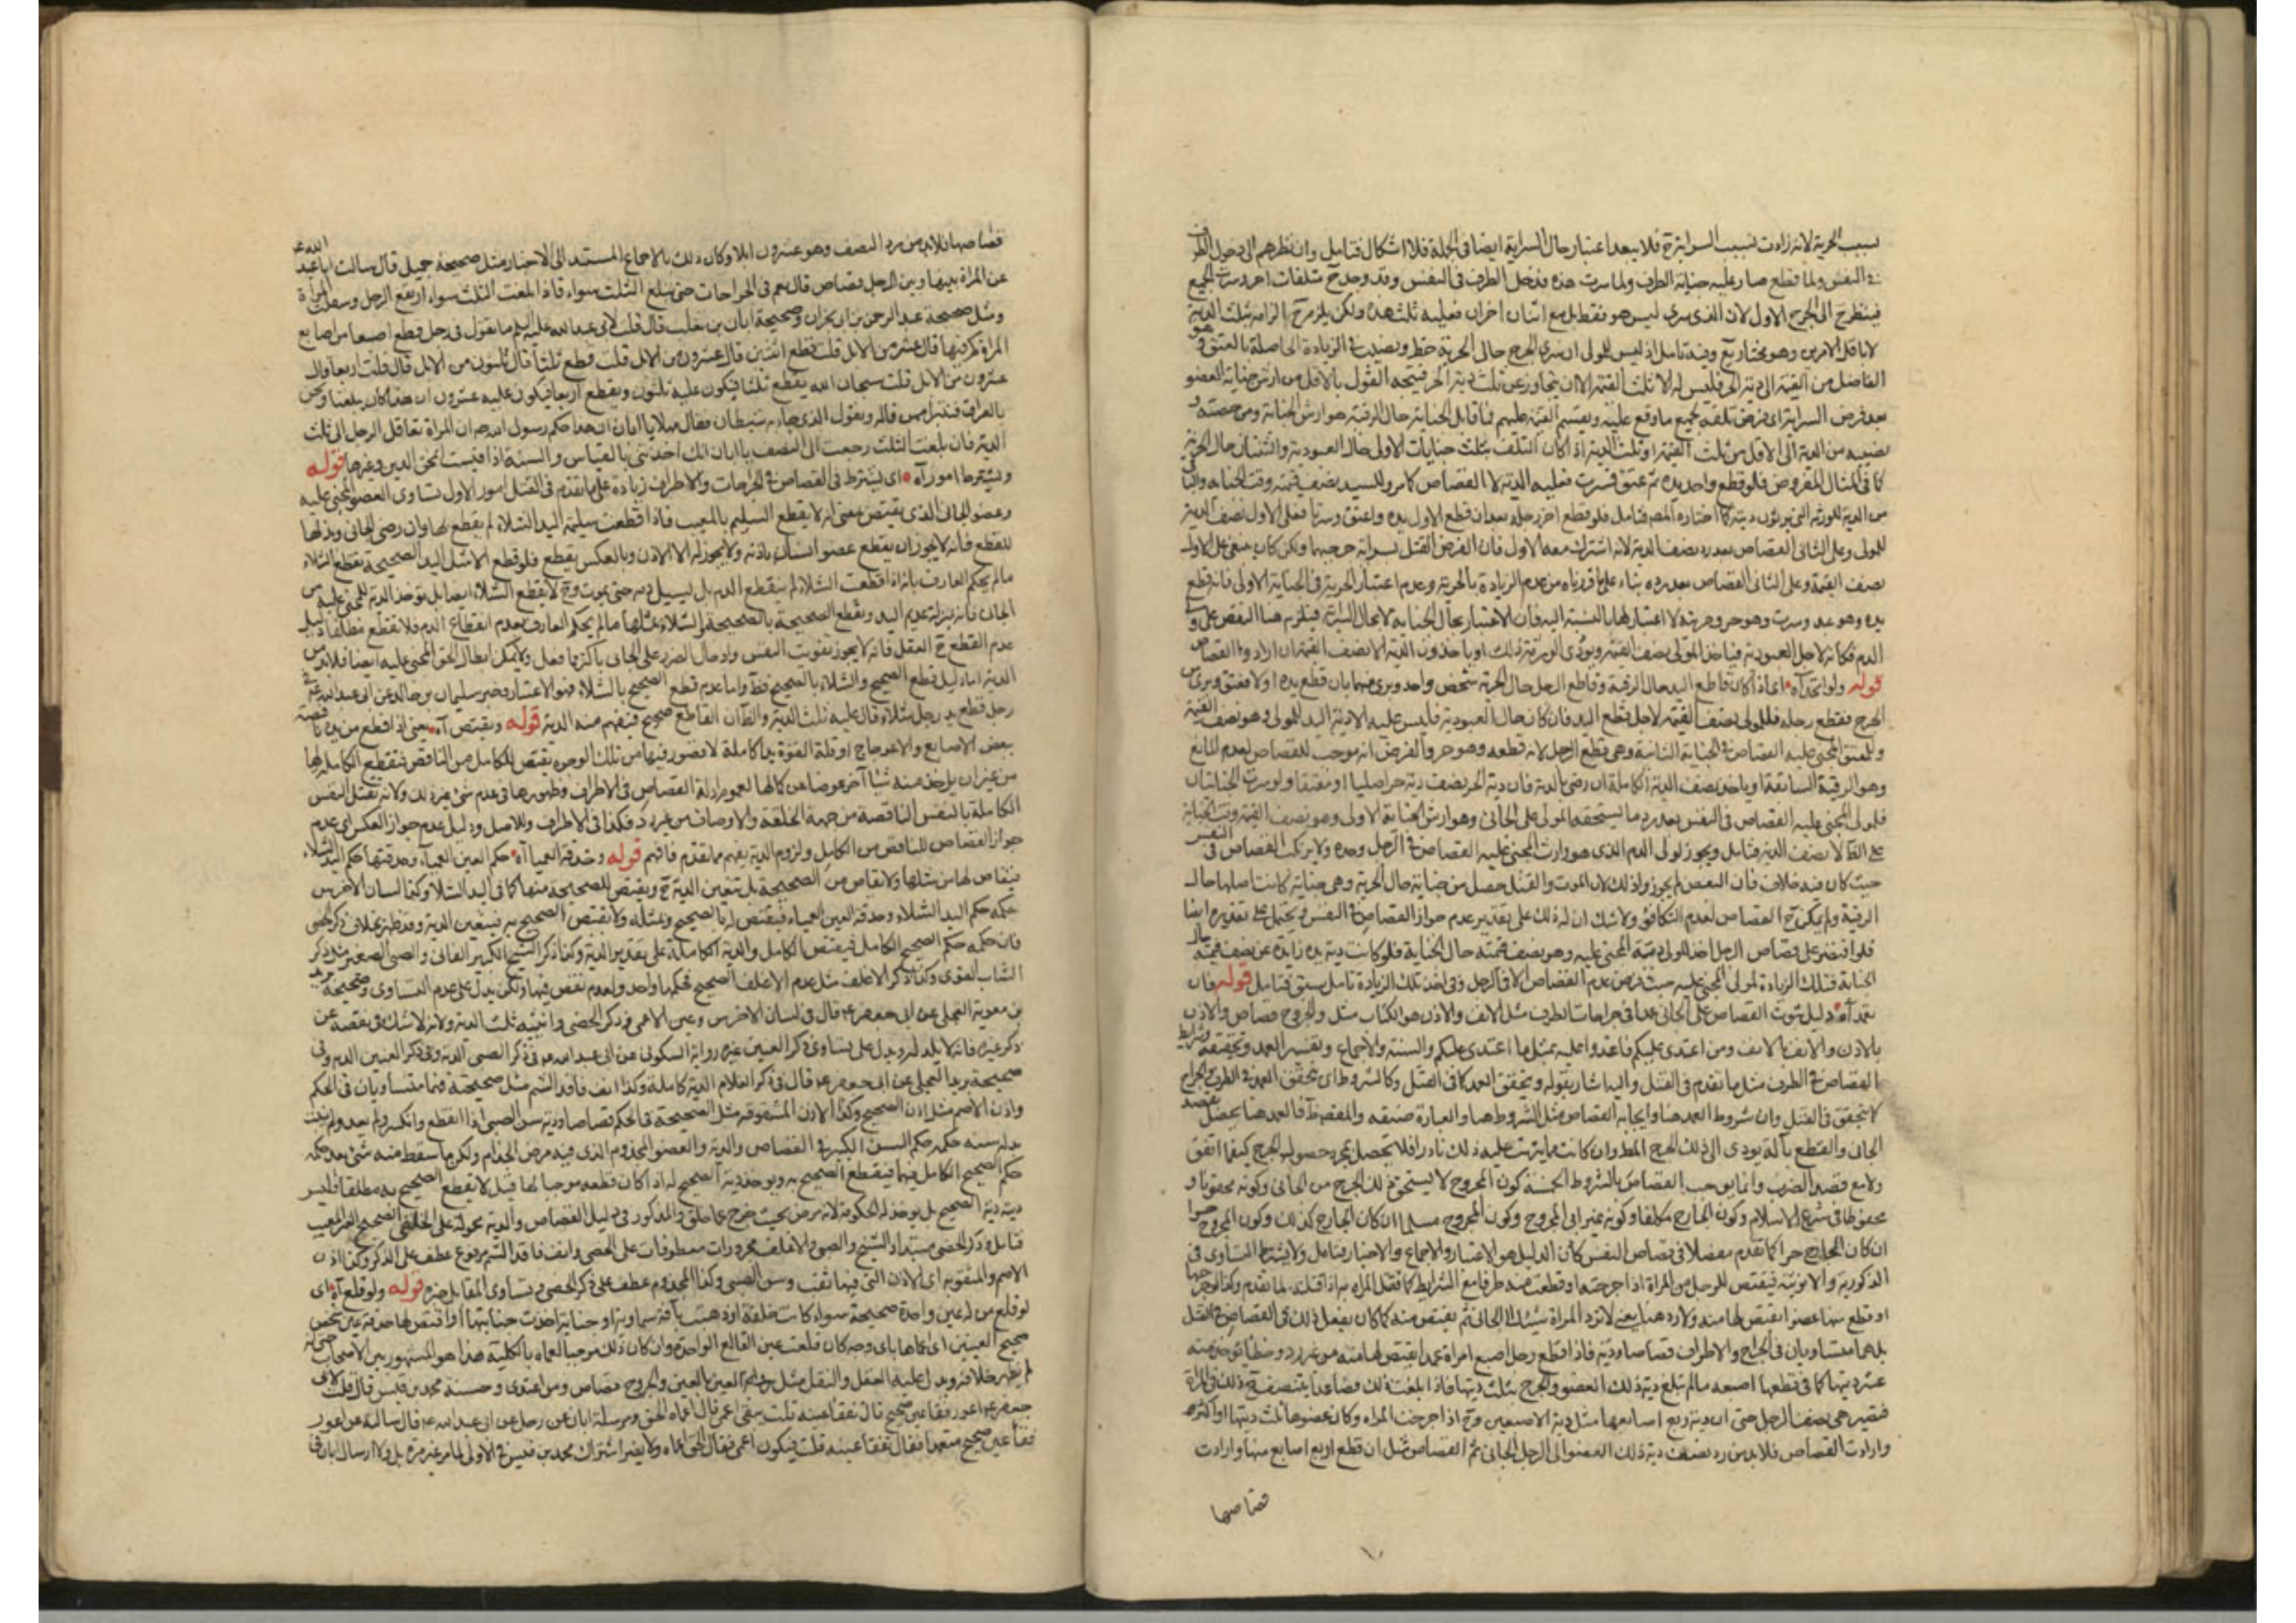 بسبب الحرية لانه زادت بسبب السراية ح فلا يبعد اعتبار حال السراية ايضا في الجملة فلا اشكال فتامل وان نظرهم الى دخول الطرف
في النفس ولما قطع صار عليه جناية الطرف ولما سرت هذه فدخل الطرف في النفس وقد وجد ح متلفات اخر وسرت الجميع
فينظر ح الى الجرح الاول لان الذي سرى ليس هو فقط بل مع اثنان اخران فعليه ثلث هذه ولكن يلزم ح الزامه بثلث الدية
لا باقل الامرين وهو مختار يع وفيه تامل اذ ليس للمولى ان سرى الجرح حال الحرية حظ ونصيب في الزيادة الحاصلة بالعتق وهو
الفاضل من القيمة الى دية الحر فليس له الا ثلث القيمة الا ان يتجاوز عن ثلث دية الحر فيتجه القول بالاقل من ارش جناية العضو
بعد فرض السراية اي فرض تلفه بجميع ما وقع عليه ويقسم القيمة عليهم فما قابل الجناية حال الرقية هو ارش الجناية ومن حصته و
نصيبه من الدية اي الاقل من ثلث القيمة او ثلث الدية اذا كان التلف بثلث جنايات الاولى حال العبودية والثنتان حال الحرية
كما في المثال المفروض فلو قطع واحد يده ثم عتق فسرت فعليه الدية لا القصاص كما مر وللسيد نصف قيمته وقت الجناية والباقي
من الدية للورثة التي يرثون ديته كما اختاره المصه فتامل فلو قطع اخر رجله بعد ان قطع الاول يده واعتق وسرتا فعلى الاول نصف الدية
للمولى وعلى الثاني القصاص بعد رد نصف الدية لانه اشترك معه الاول فان الفرض القتل بسراية جرحيهما ولكن كان ينبغي على الاول
نصف القيمة وعلى الثاني القصاص بعد رده بناء على ما قررناه من عدم الزيادة بالحرية وعدم اعتبار الحرية في الجناية الاولى فانه قطع
يده وهو عبد وسرت وهو حر وحريته لا اعتبار لها بالنسبة اليه فان الاعتبار بحال الجناية لا بحال السراية فيلزم هنا النقص على ولي
الدم فكانه لاجل العبودية فياخذ المولى نصف القيمة ويؤدي الورثة ذلك او ياخذون الدية الا نصف القيمة ان ارادوا القصاص
قوله ولو اتحد آه اي اذا كان قاطع اليد حال الرقية وقاطع الرجل حال الحرية شخص واحد وبرئ منهما بان قطع يده اولا فعتق وبرئ من
الجرح فقطع رجله فللمولى نصف القيمة لاجل قطع اليد فان كان حال العبودية فليس عليه الا دية اليد للمولى وهو نصف القيمة
وللمعتق المجني عليه القصاص في الجناية الثانية وهي قطع الرجل لانه قطعه وهو حر والفرض انه موجب للقصاص لعدم المانع
وهو الرقية السابقة او ياخذ نصف الدية الكاملة ان رضي بالدية فان دية الحر نصف دية حر اصليا او معتقا ولو سرت الجنايتان
فلولي المجني عليه القصاص في النفس بعد رد ما يستحقه المولى على الجاني وهو ارش الجناية الاولى وهو نصف القيمة وقت الجناية
على الظ لا نصف الدية فتامل ويجوز لولي الدم الذي هو وارث المجني عليه القصاص في الرجل وحده ولا يرتكب القصاص في النفس
حيث كان فيه خلاف فان البعض لم يجوز وذلك لان الموت والقتل حصل من جناية حال الحرية وهي جناية كانت اصلها حال
الرقية ولم يمكن ح القصاص لعدم التكافؤ ولا شك ان له ذلك على تقدير عدم جواز القصاص في النفس ويحتمل على تقديره ايضا
فلو اقتصر على قصاص الرجل اخذ المولى قيمة المجني عليه وهو نصف قيمته حال الجناية فلو كانت دية يده زايدة عن نصف قيمته حال
الجناية فتلك الزيادة لمولى المجني عليه حيث فرض عدم القصاص الا في الرجل وفي اخذ تلك الزيادة تامل سبق فتامل قوله فان
تعمد آه دليل ثبوت القصاص على الجاني عمدا في جراحات الطرف مثل الانف والاذن هو الكتاب مثل والجروح قصاص والاذن
بالاذن والانف بالانف ومن اعتدى عليكم فاعتدوا عليه بمثل ما اعتدى عليكم والسنة والاجماع وتفسير العمد وتحقيقه وشرايط
القصاص في الطرف مثل ما تقدم في القتل واليه اشار بقوله ويتحقق العمد كما في القتل وكالشروط اي تحقق العمد في الطرف والجراح
كالتحقق في القتل وان شروط العمد هنا وايجابه القصاص مثل الشروط هنا والعبارة ضيقه والمقصد ظ فالعمد هنا يحصل بقصد
الجاني والقطع بآلة يودي الى ذلك الجرح المط وان كانت مما يترتب عليه ذلك نادرا فلا يحصل بمجرد حصول الجرح كيفما اتفق
ولا مع قصد الضرب وانما يوجب القصاص بالشروط الخمسة كون المجروح لا يستحق ذلك الجرح من الجاني وكونه محقونا و
محفوظا في شرع الاسلام وكون الجارح مكلفا وكونه غير ابي المجروح وكون المجروح مسلما ان كان الجارح كذلك وكون المجروح حرا
ان كان الجارح حرا كما تقدم مفصلا في قصاص النفس كان الدليل هو الاعتبار والاجماع والاخبار فتامل ولا يشترط التساوي في
الذكورية والانوثية فيقتص للرجل من المراة اذا جرحته او قطعت منه طرفا مع الشرايط كما تقتل المراة به اذا قتلته لما تقدم وكذا لو جرحها
او قطع منها عضوا يقتص لها منه ولا رد هنا يعني لا ترد المراة شيئا الى الجاني ثم يقتص منه كما كان يفعل ذلك في القصاص في القتل
بل هما متساويان في الجراح والاطراف قصاصا ودية فاذا قطع رجل اصبع امراة عمدا يقتص لها منه من غير رد وخطأ يؤخذ منه
عشر ديتها كما في قطعها اصبعه ما لم تبلغ دية ذلك العضو والجرح بثلث ديتها فاذا بلغت ذلك فصاعدا يتنصف دية ذلك في المراة
فتصير هي نصف الرجل حتى ان دية ربع اصابعها مثل دية الاصبعين وح اذا جرحت المراة وكان عضوها ثلث ديتها او اكثر
وارادت القصاص فلا بد من رد نصف دية ذلك العضو الى الرجل الجاني ثم القصاص مثل ان قطع اربع اصابع منها وارادت
قصاصها
قصاصها فلا بد من رد النصف وهو عشرون ابلا وكان ذلك بالاجماع المستند الى الاخبار مثل صحيحة جميل قال سالت ابا عبد الله ع
عن المراة بينها وبين الرجل قصاص قال نعم في الجراحات حتى تبلغ الثلث سواء فاذا بلغت الثلث سواء ارتفع الرجل وسفلت المراة
ومثل صحيحة عبد الرحمن بن ابي نجران وصحيحة ابان بن تغلب قال قلت لابي عبد الله عليه السلم ما تقول في رجل قطع اصبعا من اصابع
المراة كم فيها قال عشر من الابل قلت قطع اثنتين قال عشرون من الابل قلت قطع ثلثا قال ثلثون من الابل قال قلت اربعا قال
عشرون من الابل قلت سبحان الله يقطع ثلثا فيكون عليه ثلثون ويقطع اربعا فيكون عليه عشرون ان هذا كان يبلغنا ونحن
بالعراق فنتبرا ممن قاله ونقول الذي جاء به شيطان فقال مهلا يا ابان ان هذا حكم رسول الله صه ان المراة تعاقل الرجل الى ثلث
الدية فان بلغت الثلث رجعت الى النصف يا ابان انك اخذتني بالقياس والسنة اذا قيست محق الدين وغيرها قوله
ويشترط امور آه اي يشترط في القصاص في الجراحات والاطراف زيادة على ما تقدم في القتل امور الاول تساوي العضو المجني عليه
وعضو الجاني الذي يقتص بمعنى انه لا يقطع السليم بالمعيب فاذا قطعت سليمة اليد الشلاء لم يقطع لها وان رضي الجاني وبذلها
للقطع فانه لا يجوز ان يقطع عضو انسان باذنه ولا يجوز له الا الاذن وبالعكس يقطع فلو قطع الاشل اليد الصحيحة تقطع الشلاء
ما لم يحكم العارف بانه اذا قطعت الشلاء لم ينقطع الدم بل يسيل دمه حتى يموت وح لا يقطع الشلاء ايضا بل يؤخذ الدية للمجني عليه من
الجاني فانه بمنزلة عديم اليد ويقطع الصحيحة بالصحيحة والشلاء بمثلها ما لم يحكم العارف بعدم انقطاع الدم فلا يقطع مطلقا دليل
عدم القطع ح العقل فانه لا يجوز تفويت النفس وادخال الضرر على الجاني باكثر مما فعل ولا يمكن ابطال الحق المجني عليه ايضا فلا بد من
الدية اما دليل قطع الصحيح والشلاء بالصحيح فظ واما عدم قطع الصحيح بالشلاء فهو الاعتبار وخبر سليمان بن خالد عن ابي عبد الله ع في
رجل قطع يد رجل شلاء قال عليه ثلث الدية والظ ان القاطع صحيح فيفهم منه الدية قوله ويقتص آه يعني اذا قطع من يده ناقصة
بعض الاصابع والاعوجاج او قلة القوة يدا كاملة لا قصور فيها من تلك الوجوه يقتص للكامل من الناقص فتقطع الكاملة بها
من غير ان ياخذ منه شيئا آخر عوضا عن كمالها لعموم ادلة القصاص في الاطراف وظهورها في عدم شئ غير ذلك ولانه تقتل النفس
الكاملة بالنفس الناقصة من جهة الخلقة والاوصاف من غير رد فكذا في الاطراف وللاصل ودليل عدم جواز العكس اي عدم
جواز القصاص للناقص من الكامل ولزوم الدية يفهم مما تقدم فافهم قوله وحدقة العمياء آه حكم العين العمياء وحدقتها حكم اليد الشلاء
فيقاص لها من مثلها ولا يقاص من الصحيحة بل تتعين الدية ح ويقتص للصحيحة منها كما في اليد الشلاء وكذا لسان الاخرس
حكمه حكم اليد الشلاء وحدقة العين العمياء فيقتص له بالصحيح وبمثله ولا يقتص الصحيح به فيتعين الدية وقد ظهر بخلاف ذكر الخصي
فان حكمه حكم الصحيح الكامل فيقتص بالكامل والدية الكاملة على تقدير الدية وكذا ذكر الشيخ الكبير الفاني والصبي الصغير مثل ذكر
الشاب القوي وكذا ذكر الاغلف مثل عدم الاغلف الصحيح فحكمها واحد ولعدم نقص فيها ولكن يدل على عدم التساوي صحيحة بريد
بن معوية العجلي عن ابي جعفر ع قال في لسان الاخرس وعين الاعمى وذكر الخصي وانثييه ثلث الدية ولانه لا شك في نقصه عن
ذكر غيره فانه لا يلد له ويدل على تساوي ذكر العنين غيره رواية السكوني عن ابي عبد الله ع في ذكر الصبي الدية وفي ذكر العنين الدية وفي
صحيحة بريد العجلي عن ابي جعفر ع قال في ذكر الغلام الدية كاملة وكذا انف فاقد الشم مثل صحيحة فهما متساويان في الحكم
واذن الاصم مثل اذن الصحيح وكذا الاذن المثقوبة مثل الصحيحة في الحكم قصاصا ودية سن الصبي اذا انقطع وانكسر ولم يعد ولم ينبت
بدله سنه حكمه حكم السن الكبير في القصاص والدية والعضو المجذوم الذي فيه مرض الجذام ولكن ما سقط منه شئ بعد حكمه
حكم الصحيح الكامل فيها فيقطع الصحيح به ويوخذ دية الصحيح له اذا كان قطعه موجبا لها قيل لا يقطع الصحيح به مطلقا فليس
ديته دية الصحيح بل يوخذ له الحكومة لانه مرض بحيث خرج عما خلق والمذكور في دليل القصاص والدية محمولة على الخلقي الصحيح الغير المعيب
فتامل وذكر الخصي مبتدا والشيخ والصبي والاغلف مجرورات معطوفات على الخصي وانف فاقد الشم مرفوع عطف على الذكر وكذا اذن
الاصم والمثقوبة اي الاذن التي فيها ثقب وسن الصبي وكذا المجذوم عطف على ذكر الخصي ويتساوي المقابل خبره قوله ولو قلع آه اي
لو قلع من له عين واحدة صحيحة سواء كانت خلقة او ذهبت بآفة سماوية او جناية اخذت جنايتها او اقتص لها حدقة عين شخص
صحيح العينين اي اعماها باي وجه كان قلعت عين القالع الواحدة وان كان ذلك موجبا لعماه بالكلية هذا هو المشهور بين الاصحاب حتى انه
لم يظهر خلافه ويدل عليه العقل والنقل مثل قوله العين بالعين والجروح قصاص ومن اعتدى وحسنة محمد بن قيس قال قلت لابي
جعفر ع اعور فقا عين صحيح قال تفقا عينه قلت يبقى اعمى قال اعماه الحق ومرسلة ابان عن رجل عن ابي عبد الله ع قال سالته عن اعور
فقا عين صحيح متعمدا فقال تفقا عينه قلت فيكون اعمى فقال الحق اعماه ولا يضر اشتراك محمد بن قيس في الاولى لما مر غير مرة بل ولا ارسال ابان في